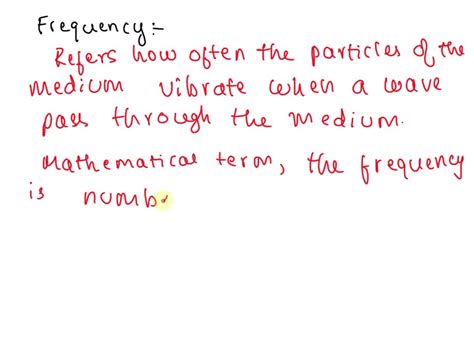 Frequency:-
Refers how often the particles of the
medium vibrate when a wave
pass through the medium.
Mathematical term, the frequency
is numb